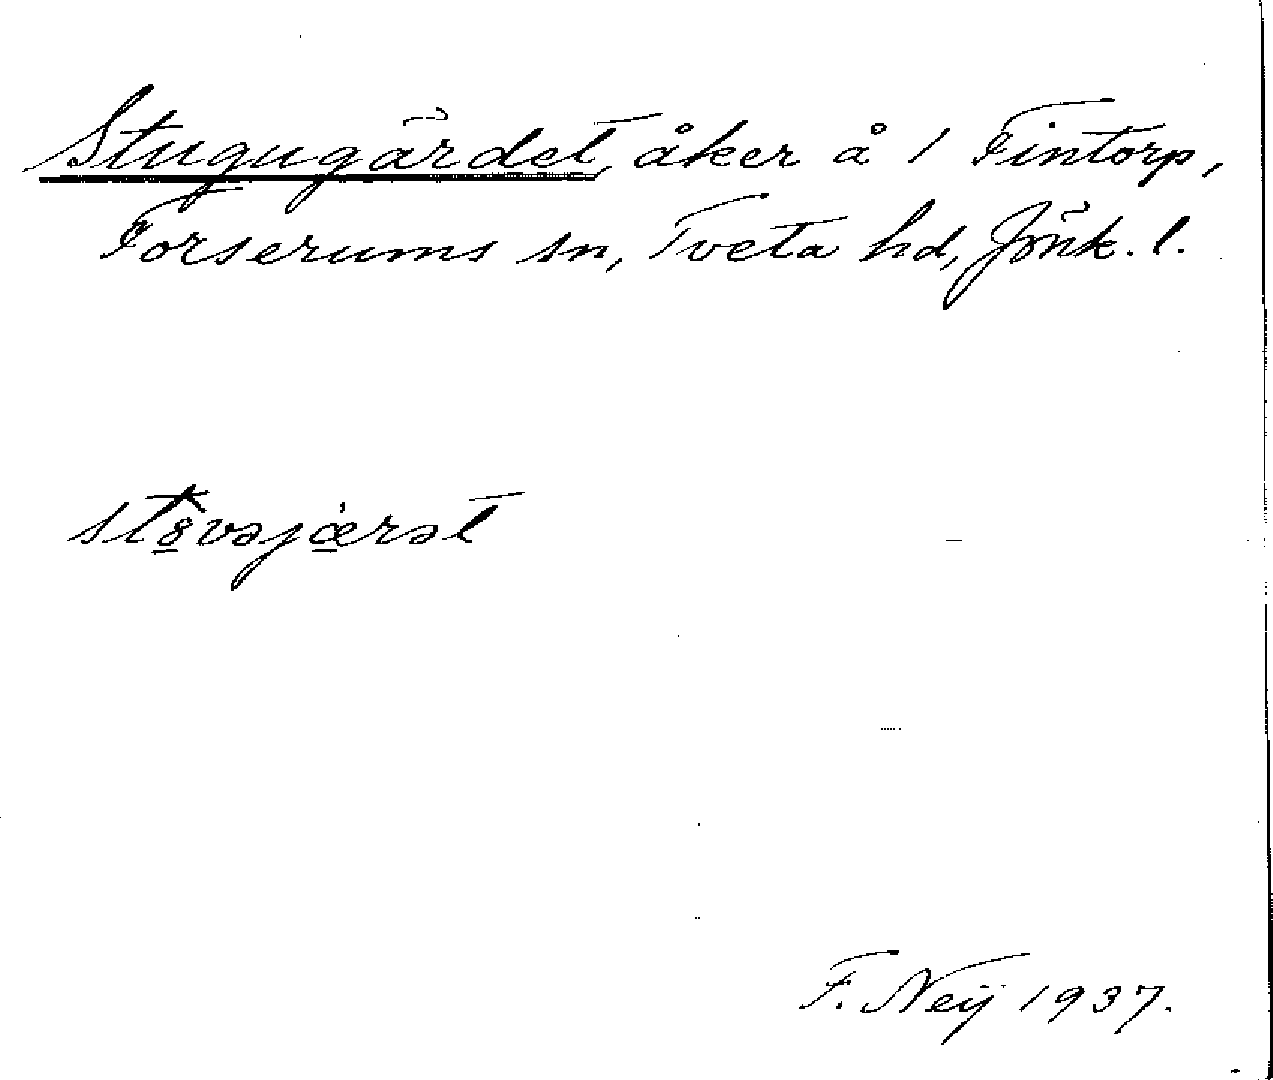 Stugugärdet, åker å 1 Fintorp,
Forserums sn, Tveta hd, Jönk. l.
st8vəjærət
F. Neij 1937.